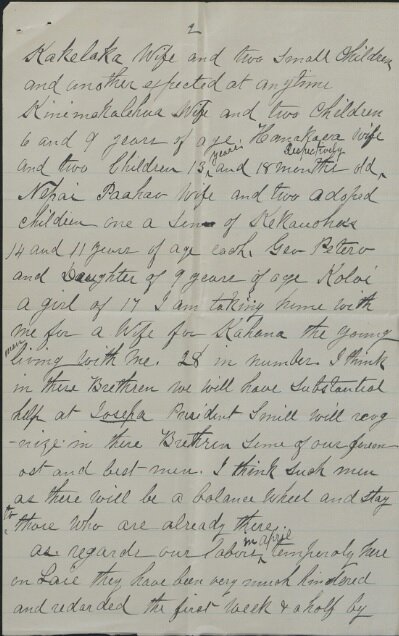 2
Kakelaka Wife and two small Children
and another expected at anytime
Kinimakalehua Wife and two Children
6 and 9 years of age Hanakaea Wife
and two Children 13 years and 18 months old, respectively
Nepai Paahao Wife and two adopted
children one a son of Kekauohus
14 and 11 years of age each, Geo Peters
and Daughter of 9 years of age Koloi
a girl of 17 I am taking home with
me for a Wife for Kahana the young
man living with me. 28 in number. I think
in these Brethren we will have substantial
help at Iosepa President Smith will recog
-nize in these Brethren some of our forem
ost and best men. I think such men
as these will be a balance wheel and stay
to those who are already there.
as regards our labors in April temporaly here
on Laie they have been very much hindered
and redarded the first week & a half by